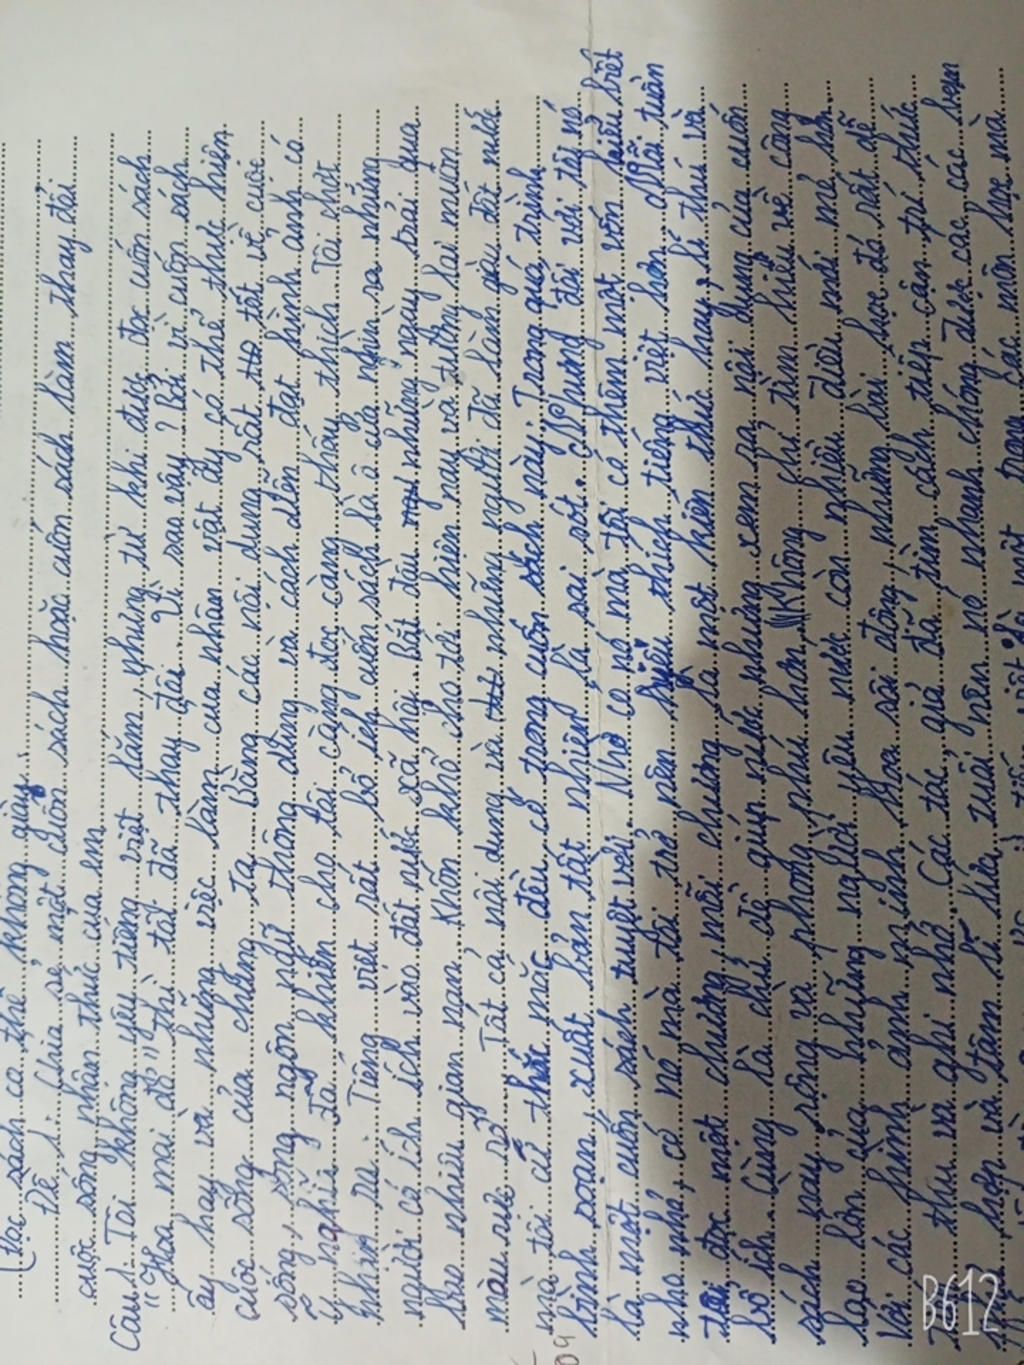 (đọc sách cả thể không giấy.
Đề 1: Chia sẻ một cuốn sách hoặc cuốn sách làm thay đổi
cuộc sống nhận thức của em
Câu 1: Tôi không yêu tiếng việt lắm, nhưng từ khi được đọc cuốn sách
"Hoa mai đỏ" thì tôi đã thay đổi. Vì sao vậy? Bởi vì cuốn sách
ấy hay và những việc làm của nhân vật ấy có thể thực hiện
cuộc sống của chúng ta. Bằng các nội dung rất tốt về cuộc
sống, sống ngôn ngữ thông dùng và cách diễn đạt hình ảnh có
ý nghĩa. Tự nhiên cho tôi càng đọc càng thấy thích. Tôi chợt
nhận ra: Tiếng việt rất bổ ích, cuốn sách là ô cửa nhìn ra những
người có ích ích vào đất nước xã hội. Bắt đầu những ngày trải qua
bao nhiêu gian nan. Khốn khổ cho tới hiện nay và tương lai muôn
màu rực rỡ. Tất cả nội dung và những người đã làm giàu đất nước
mà tôi cứ thắc mắc đều có trong cuốn sách này. Trong quá trình
biên soạn, xuất bản tất nhiên là sai sót. Nhưng đối với tôi nó
là một cuốn sách tuyệt vời. Nhờ có nó mà tôi có thêm một vốn hiểu biết
nho nhỏ, có nó mà tôi trở nên yêu thích tiếng việt hơn. Mỗi tuần
tôi đọc một chương, mỗi chương là một kiến thức hay, lí thú và
bổ ích. Cùng là chủ đề giúp nước nhưng xem ra nội dung của cuốn
sách này rộng và phong phú hơn. Không chỉ tìm hiểu về công
lao lớn của những người yêu nước còn nhiều điều mới mẻ hơn
Với các hình ảnh minh họa sôi động, những bài học đó rất dễ
thu và ghi nhớ. Các tác giả đã tìm cách tiếp cận trí thức
hợp và tâm lí lứa tuổi nên nó nhanh chóng được các các bạn
B612
09